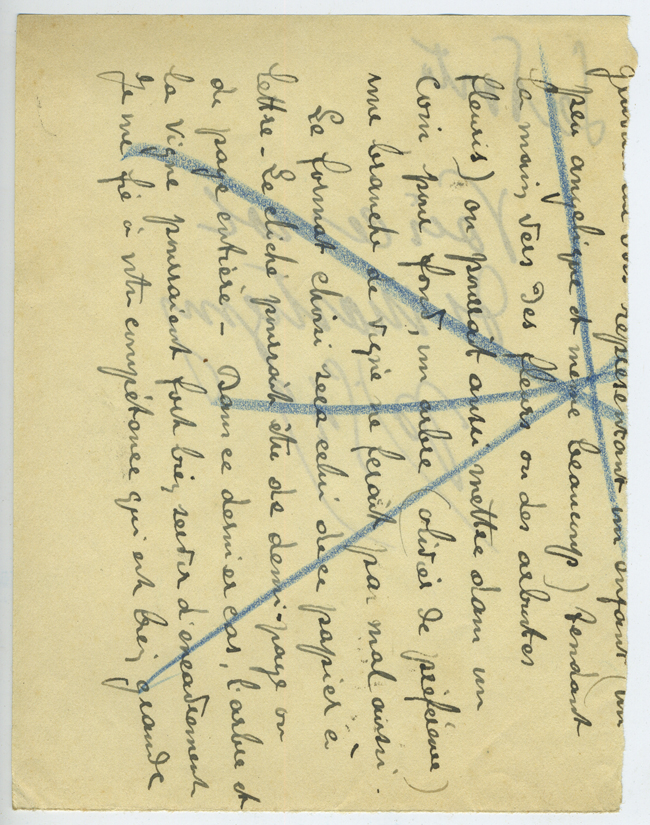 représentant un enfant (un
peu angelique et même beaucoup) tendant
la main vers des fleurs ou des arbustes
fleuris) on pourrait aussi mettre dans un
coin pour fond, un arbre (olivier de préférence)
une branche de vigne ne ferait pas mal aussi.
Le format choisi sera celui de ce papier à
lettre - Le cliché pourrait être de demi-page ou
de page entière - Dans ce dernier cas, l'arbre et
la vigne pourraient fort bien servir d'encadrement
Je me fie à votre compétence qui est bien grande